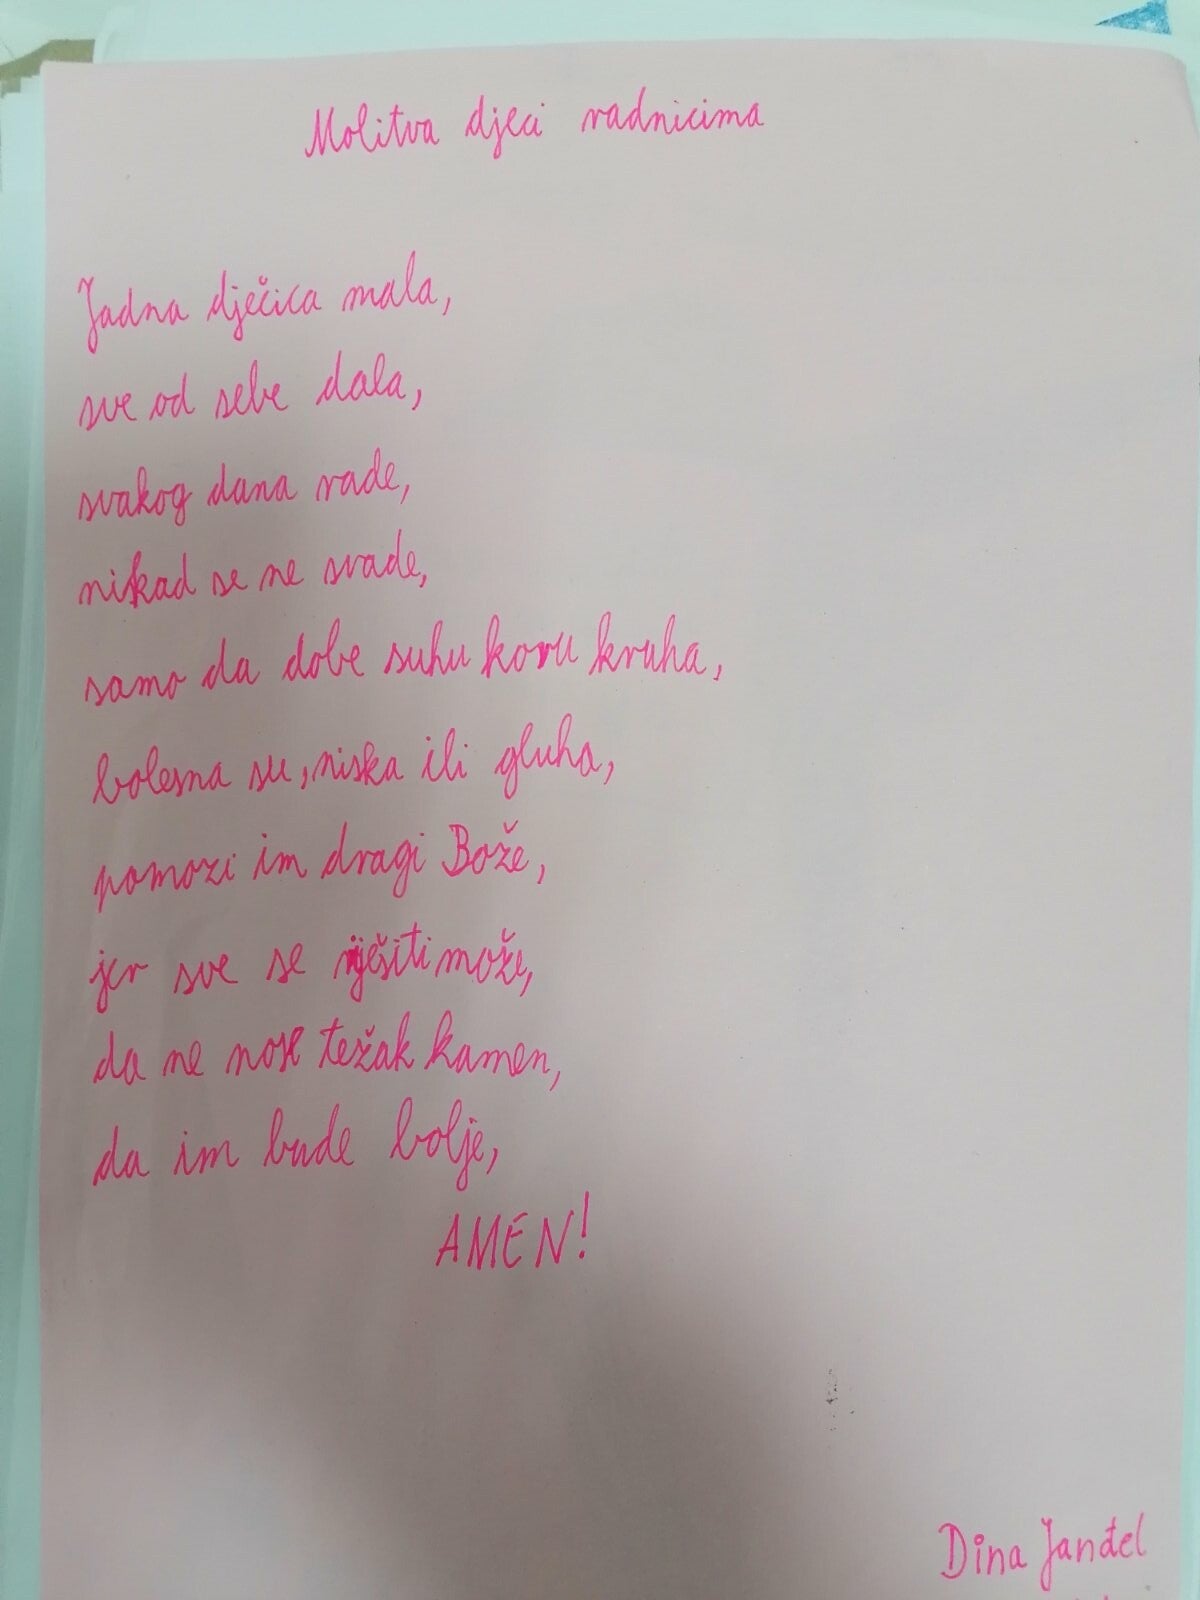 Molitva djeci radnicima
Jadna dječica mala,
sve od sebe dala,
svakog dana rade,
nikad se ne svade,
samo da dobe suhu koru kruha,
bolesna su, niska ili gluha,
pomozi im dragi Bože,
jer sve se riješiti može,
da ne nose težak kamen,
da im bude bolje,
AMEN!
Dina Janđel